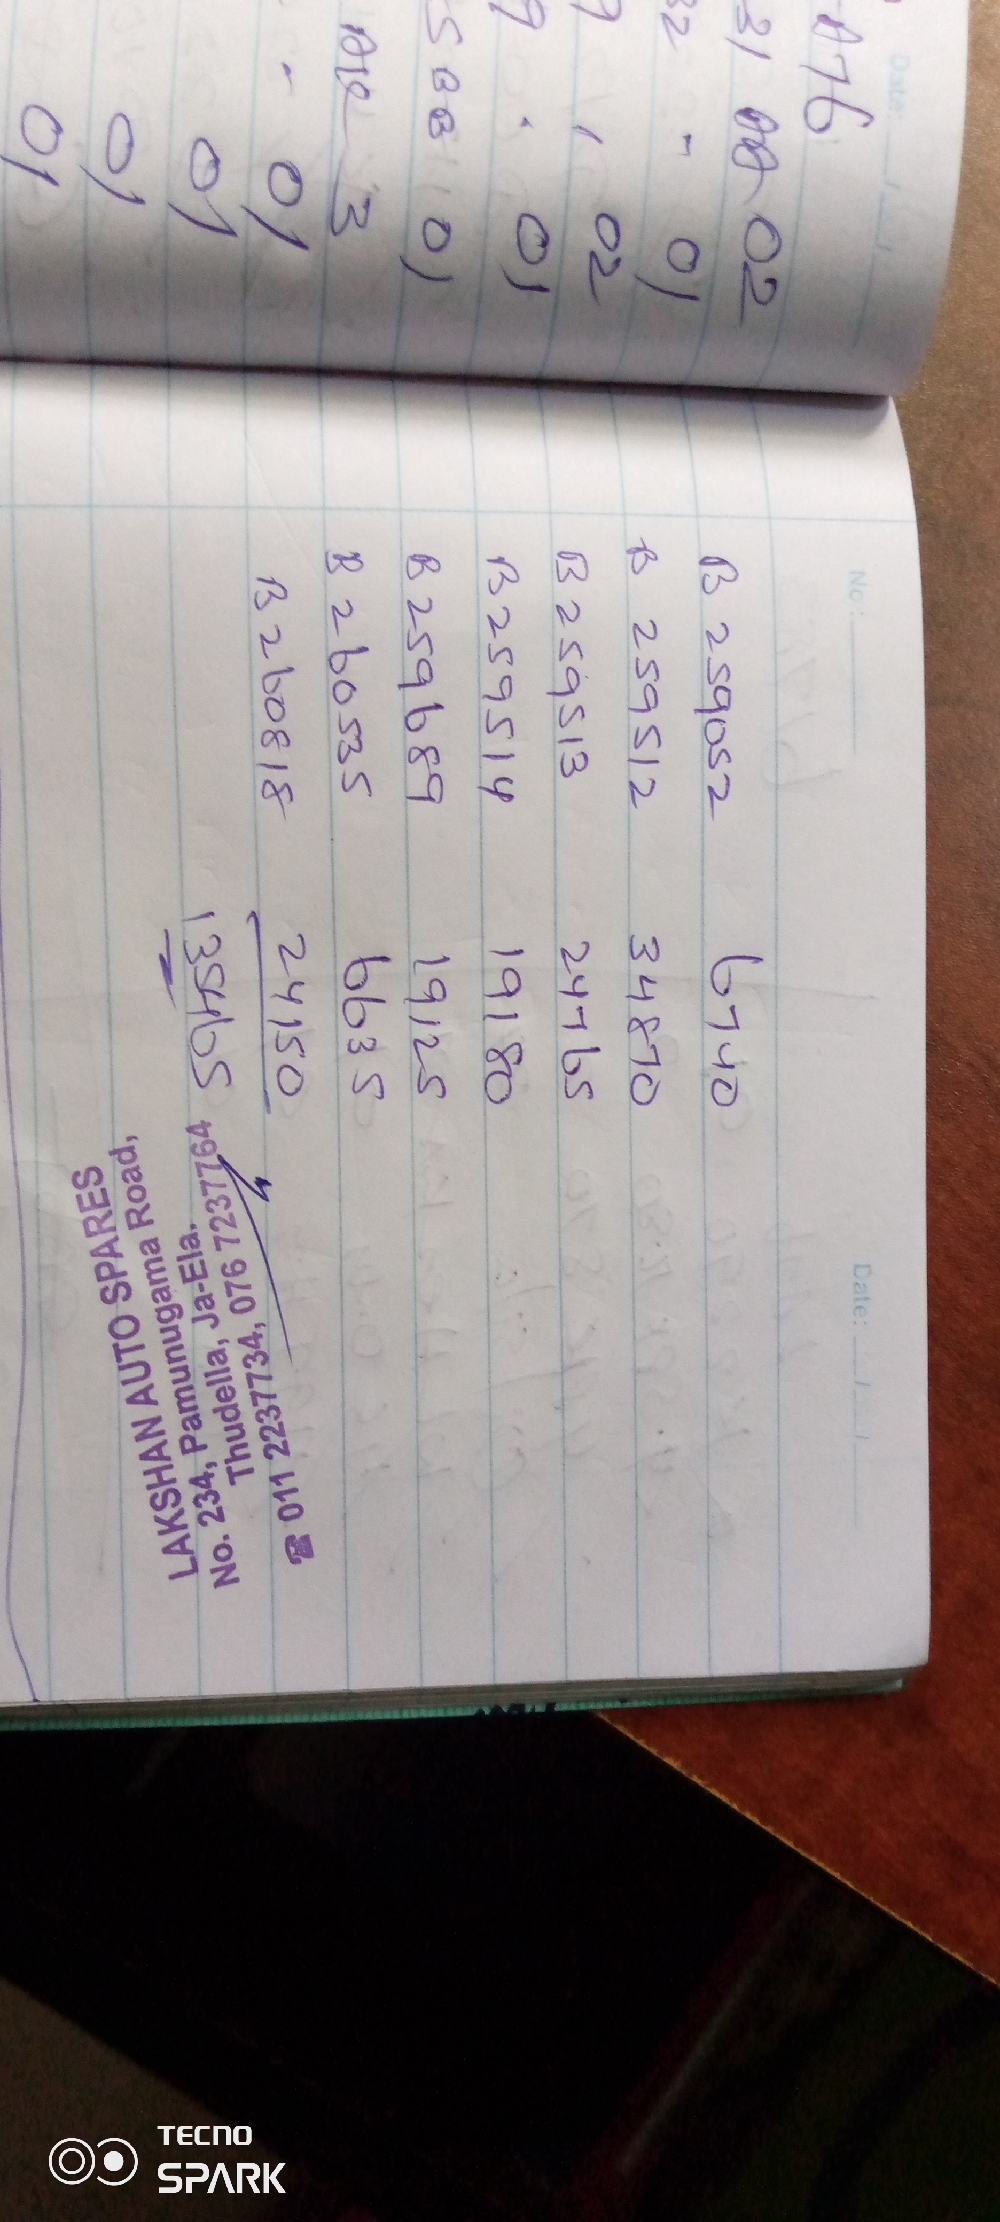 Date:
A76
31 02
32 " 01
9 02
9 01
01
3
- 01
01
01
01
No:
Date:
B 259052 6740
B 259512 34870
B 259513 24765
B 259514 19180
B 259689 19125
B 260535 6635
B 260818 24150
135465
LAKSHAN AUTO SPARES
No. 234, Pamunugama Road,
Thudella, Pamunuj, Ja-Ela.
☎ 011 2237734, 076 7237764
TECNO
SPARK